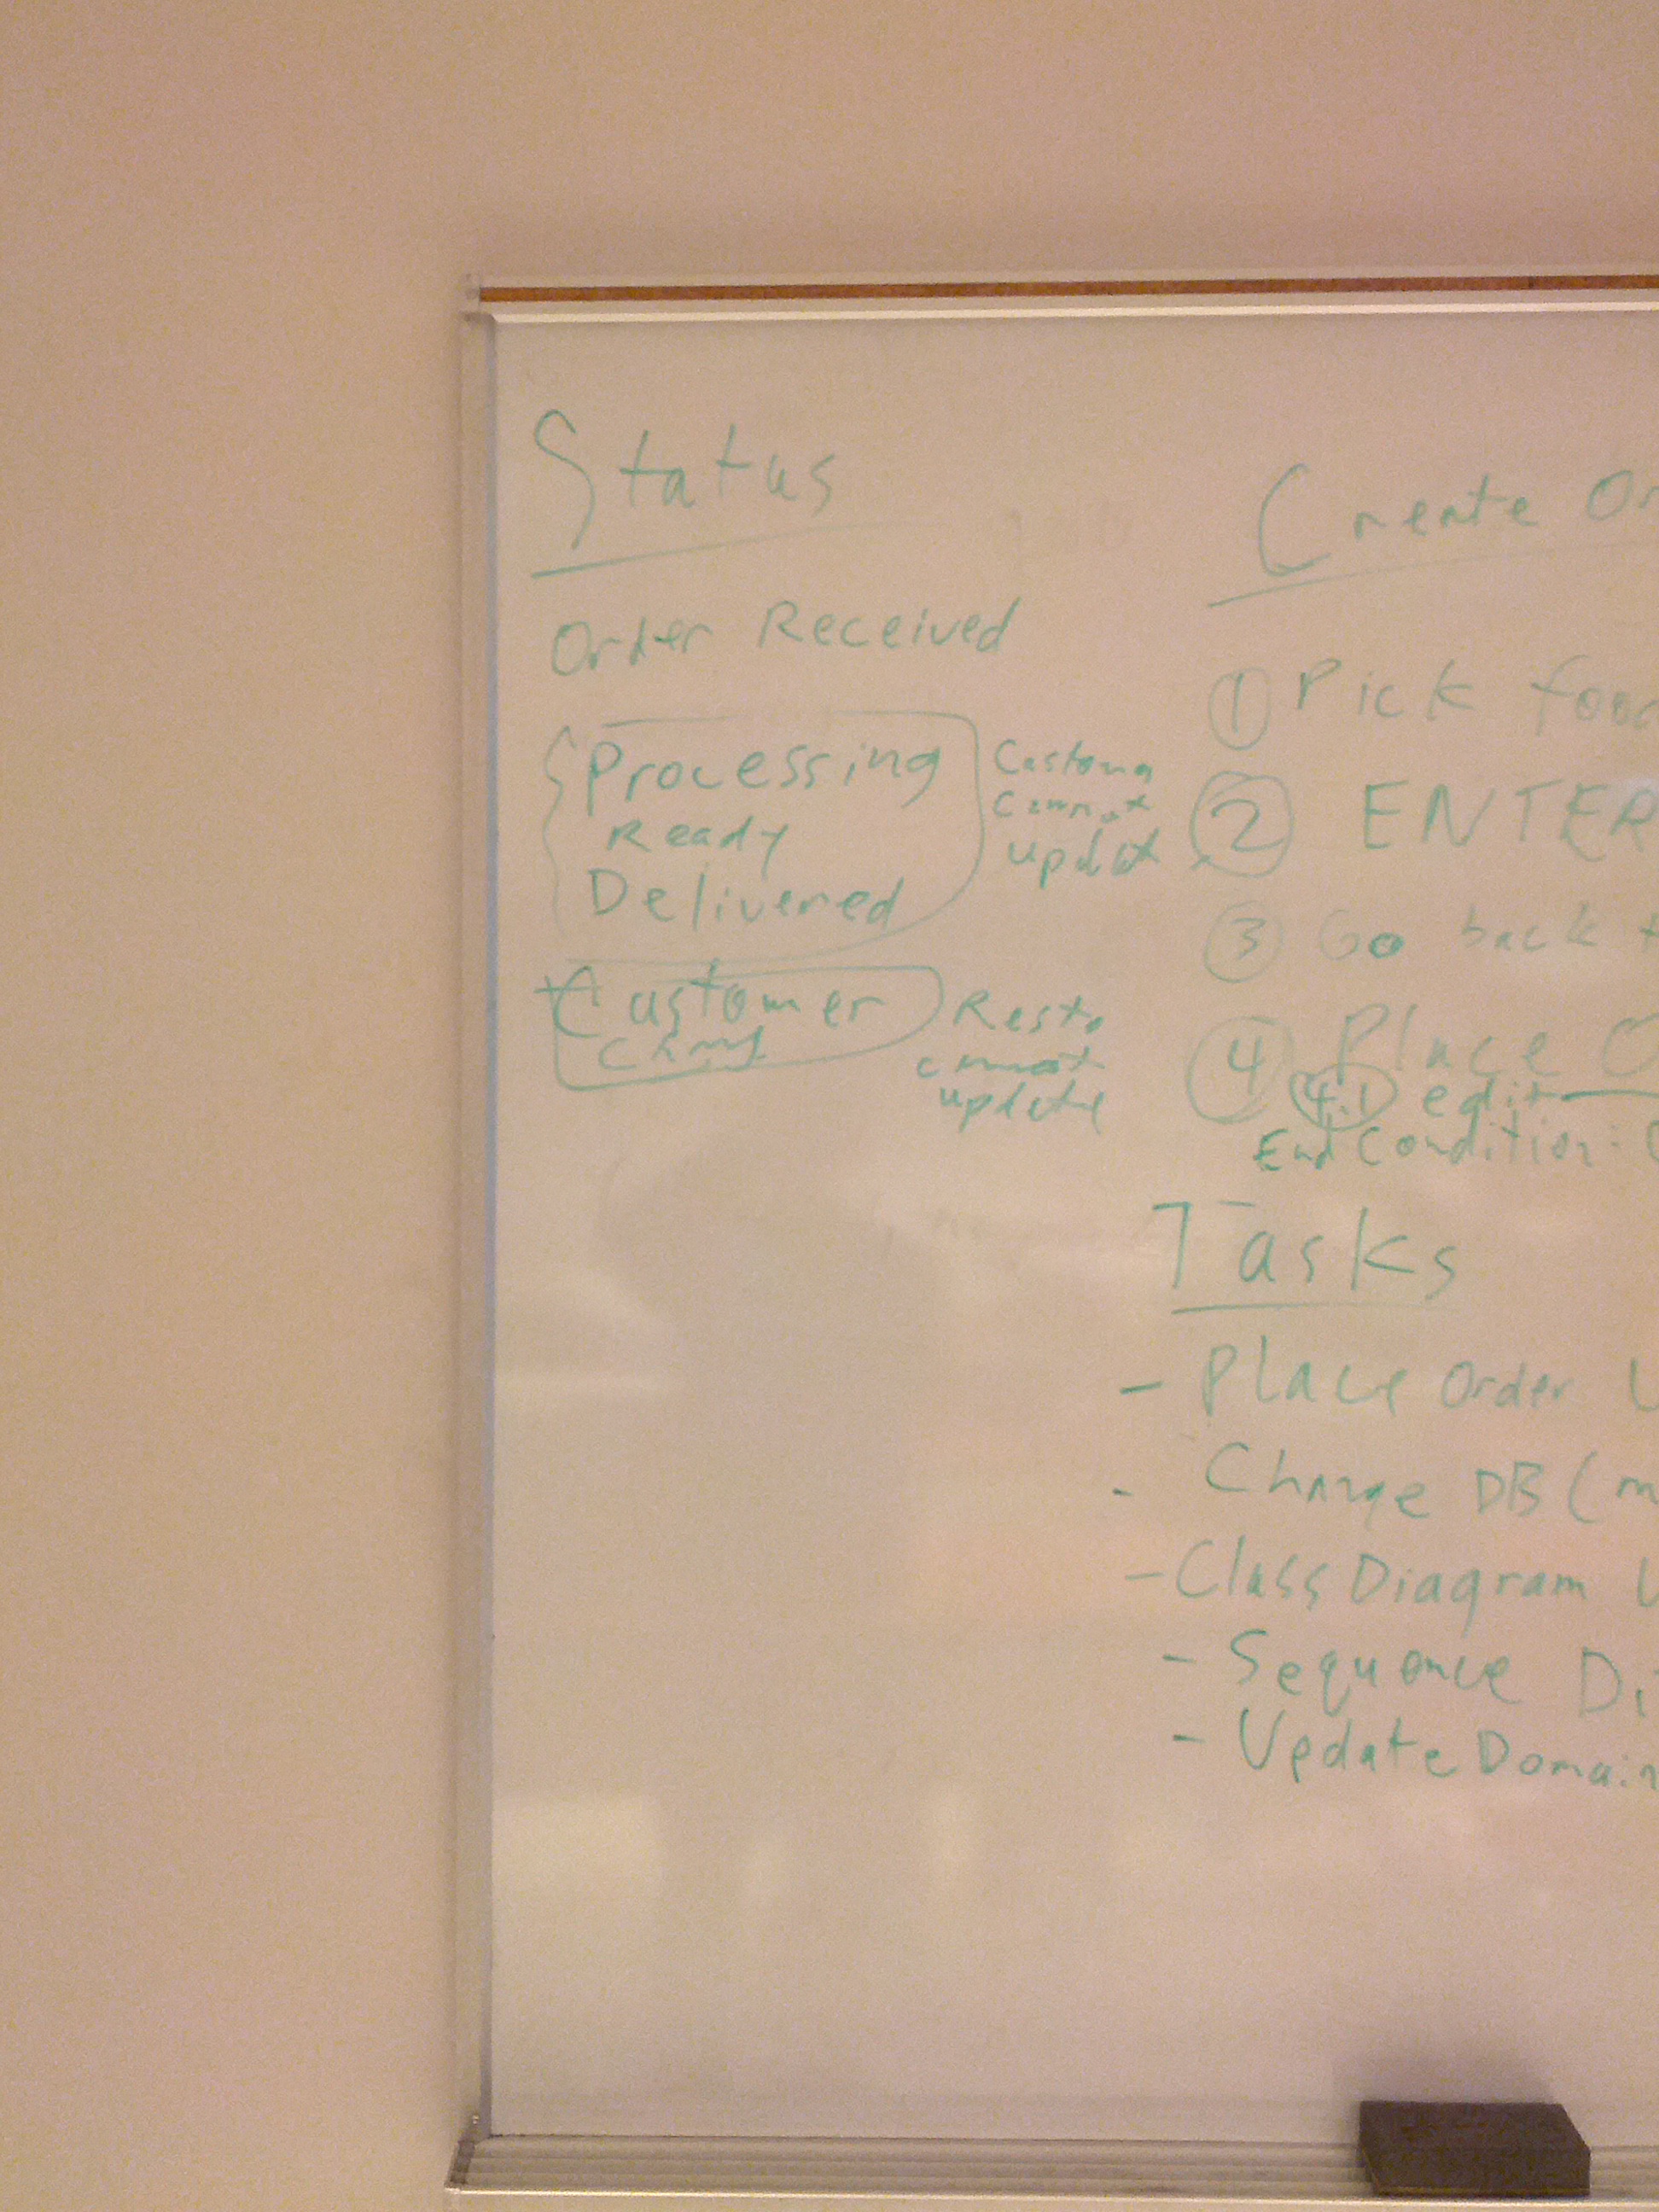 Status
Order Received
Processing
Ready
Delivered
Customer
cannot
update
Customer
Resto
cannot
update
Create Or
1 Pick food
2 ENTER
3 Go back t
4 Place O
4.1 edit
End Condition: C
Tasks
- Place Order U
- Change DB (m
- Class Diagram U
- Sequence Di
- Update Domain